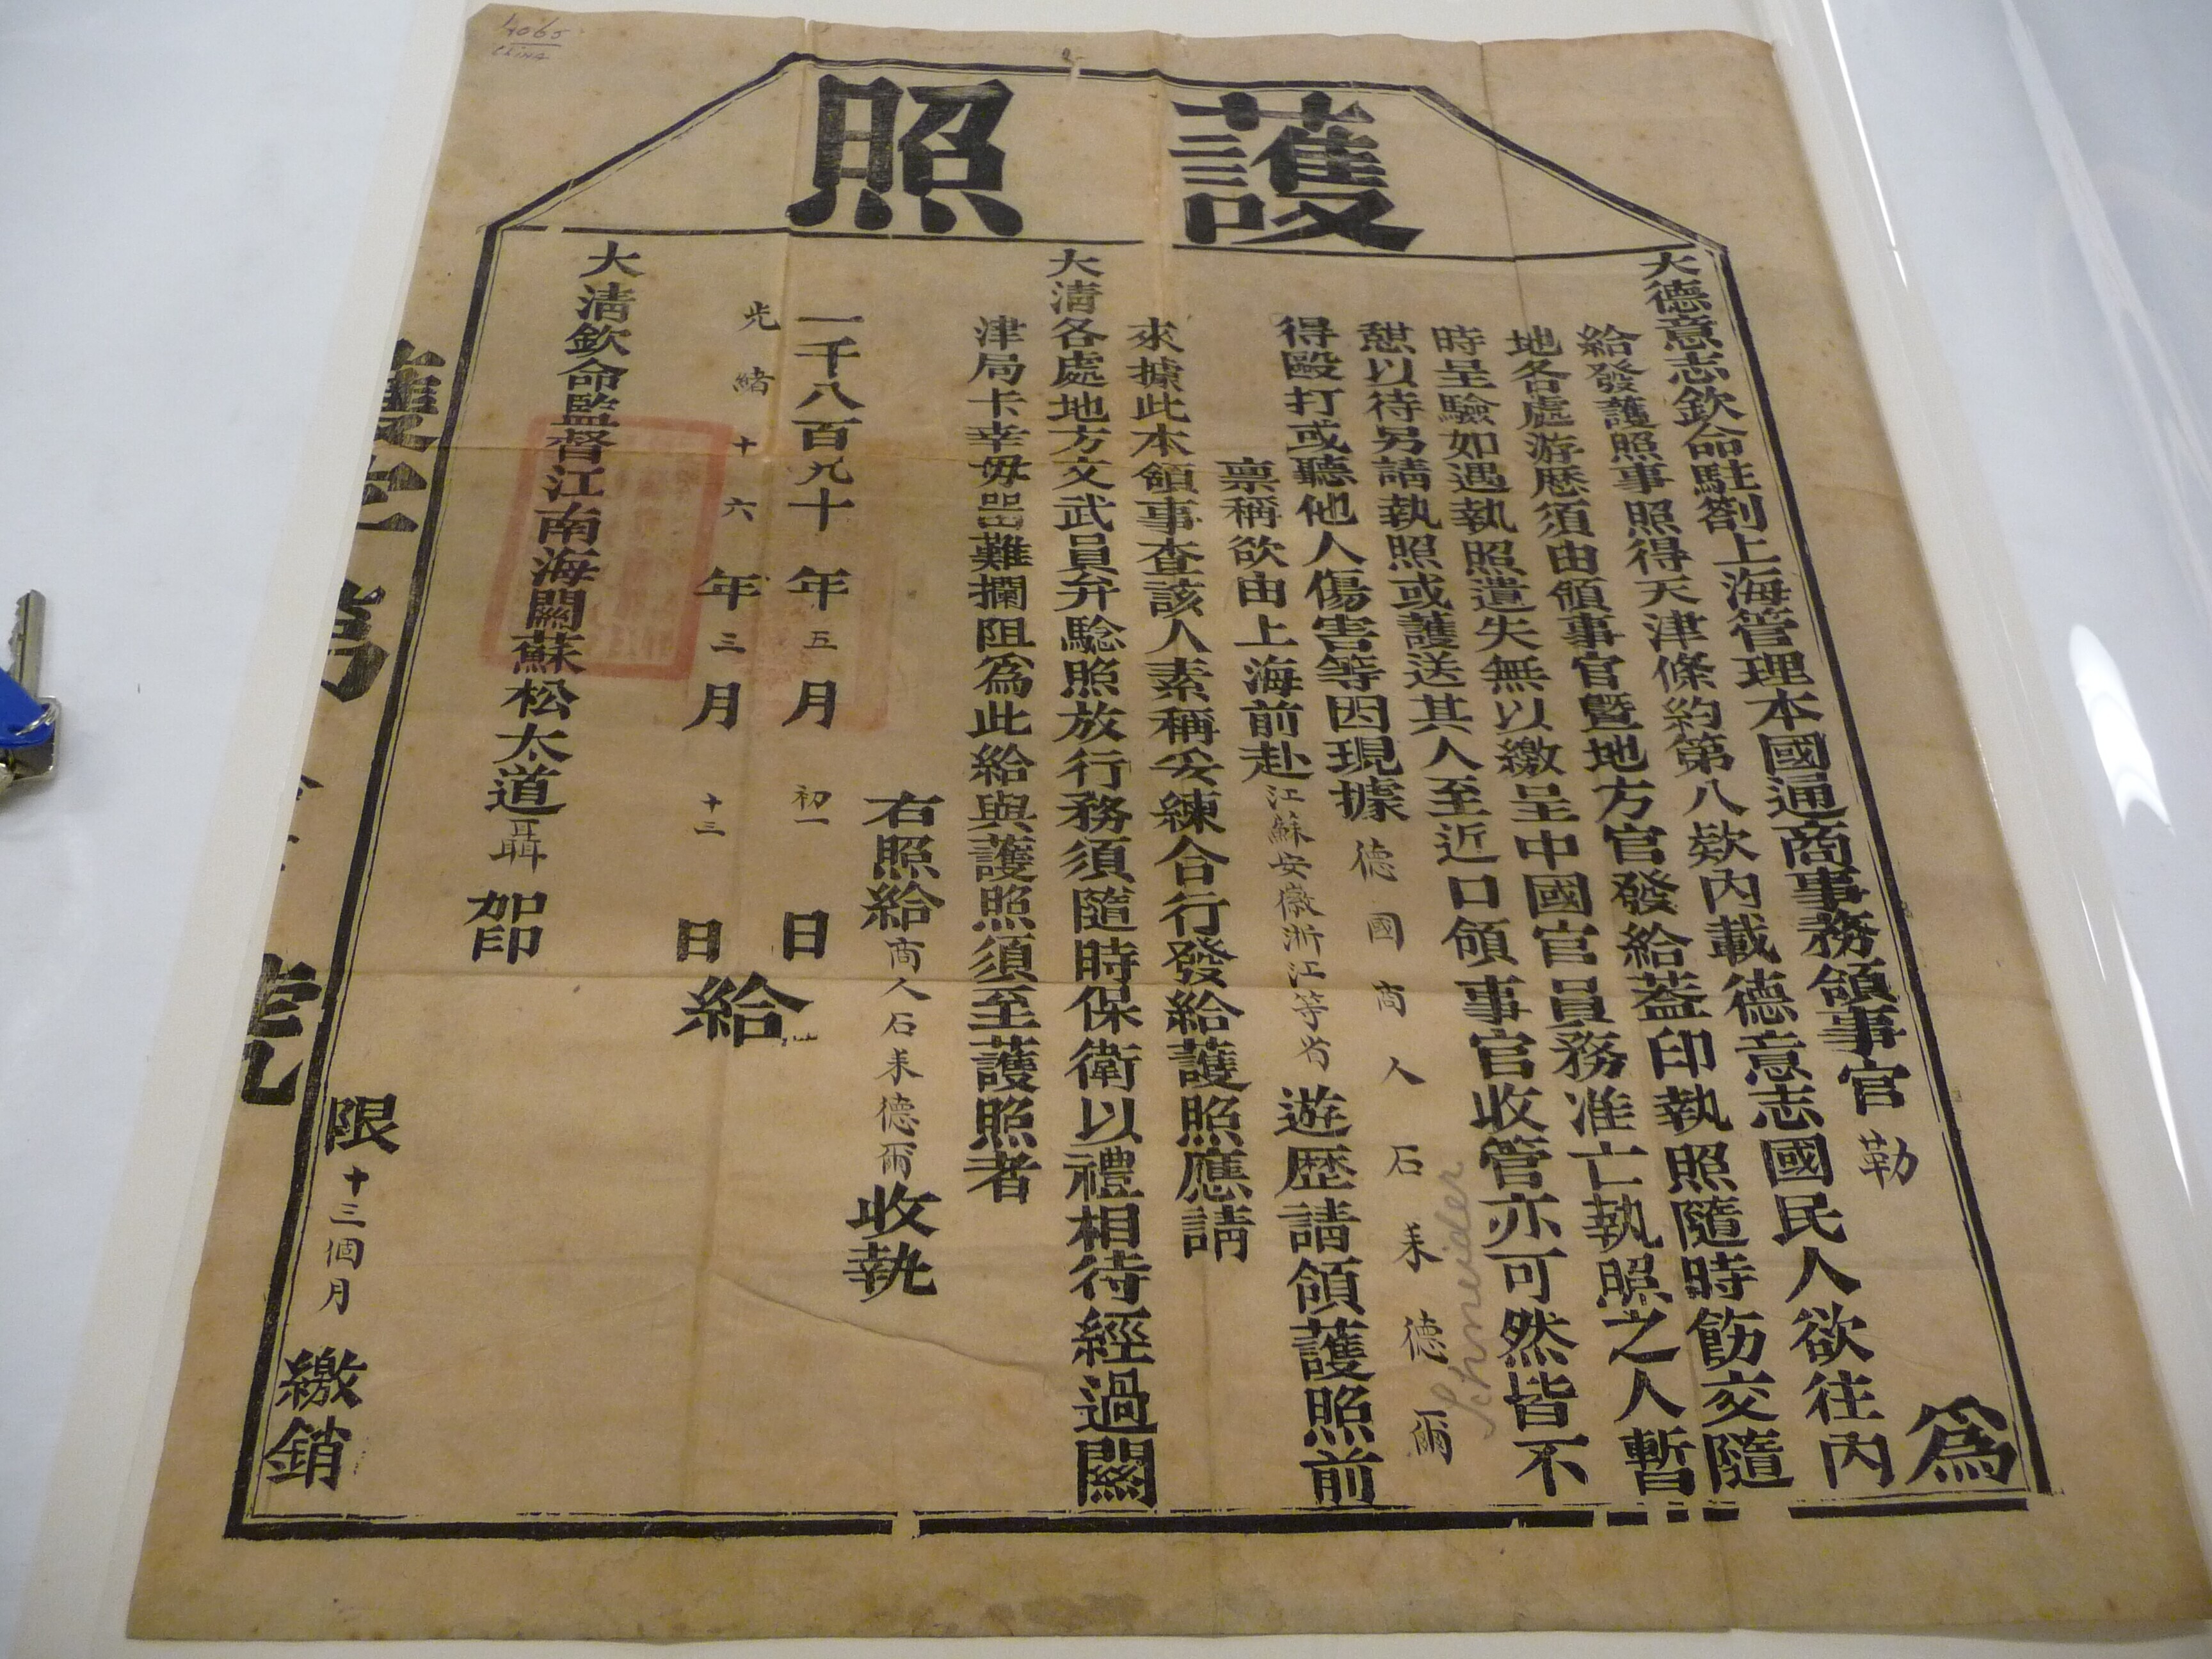 4065
China
護照
大德意志欽命駐劄上海管理本國通商事務領事官勒 爲
給發護照事照得天津條約第八欵內載德意志國民人欲往內
地各處游歷須由領事官暨地方官發給蓋印執照隨時飭交隨
時呈驗如遇執照遺失無以繳呈中國官員務准亡執照之人暫
憇以待另請執照或護送其人至近口領事官收管亦可然皆不
得毆打或聽他人傷害等因現據德國商人石耒德爾
Schneider
禀稱欲由上海前赴江蘇安徽浙江等省遊歷請領護照前
來據此本領事查該人素稱妥練合行發給護照應請
大清各處地方文武員弁騐照放行務須隨時保衛以禮相待經過關
津局卡幸毋留難攔阻爲此給與護照須至護照者
右照給商人石耒德爾收執
一千八百九十年五月初一日
給
光緒十六年三月十三日
大清欽命監督江南海關蘇松太道聶 加印
限十三個月繳銷